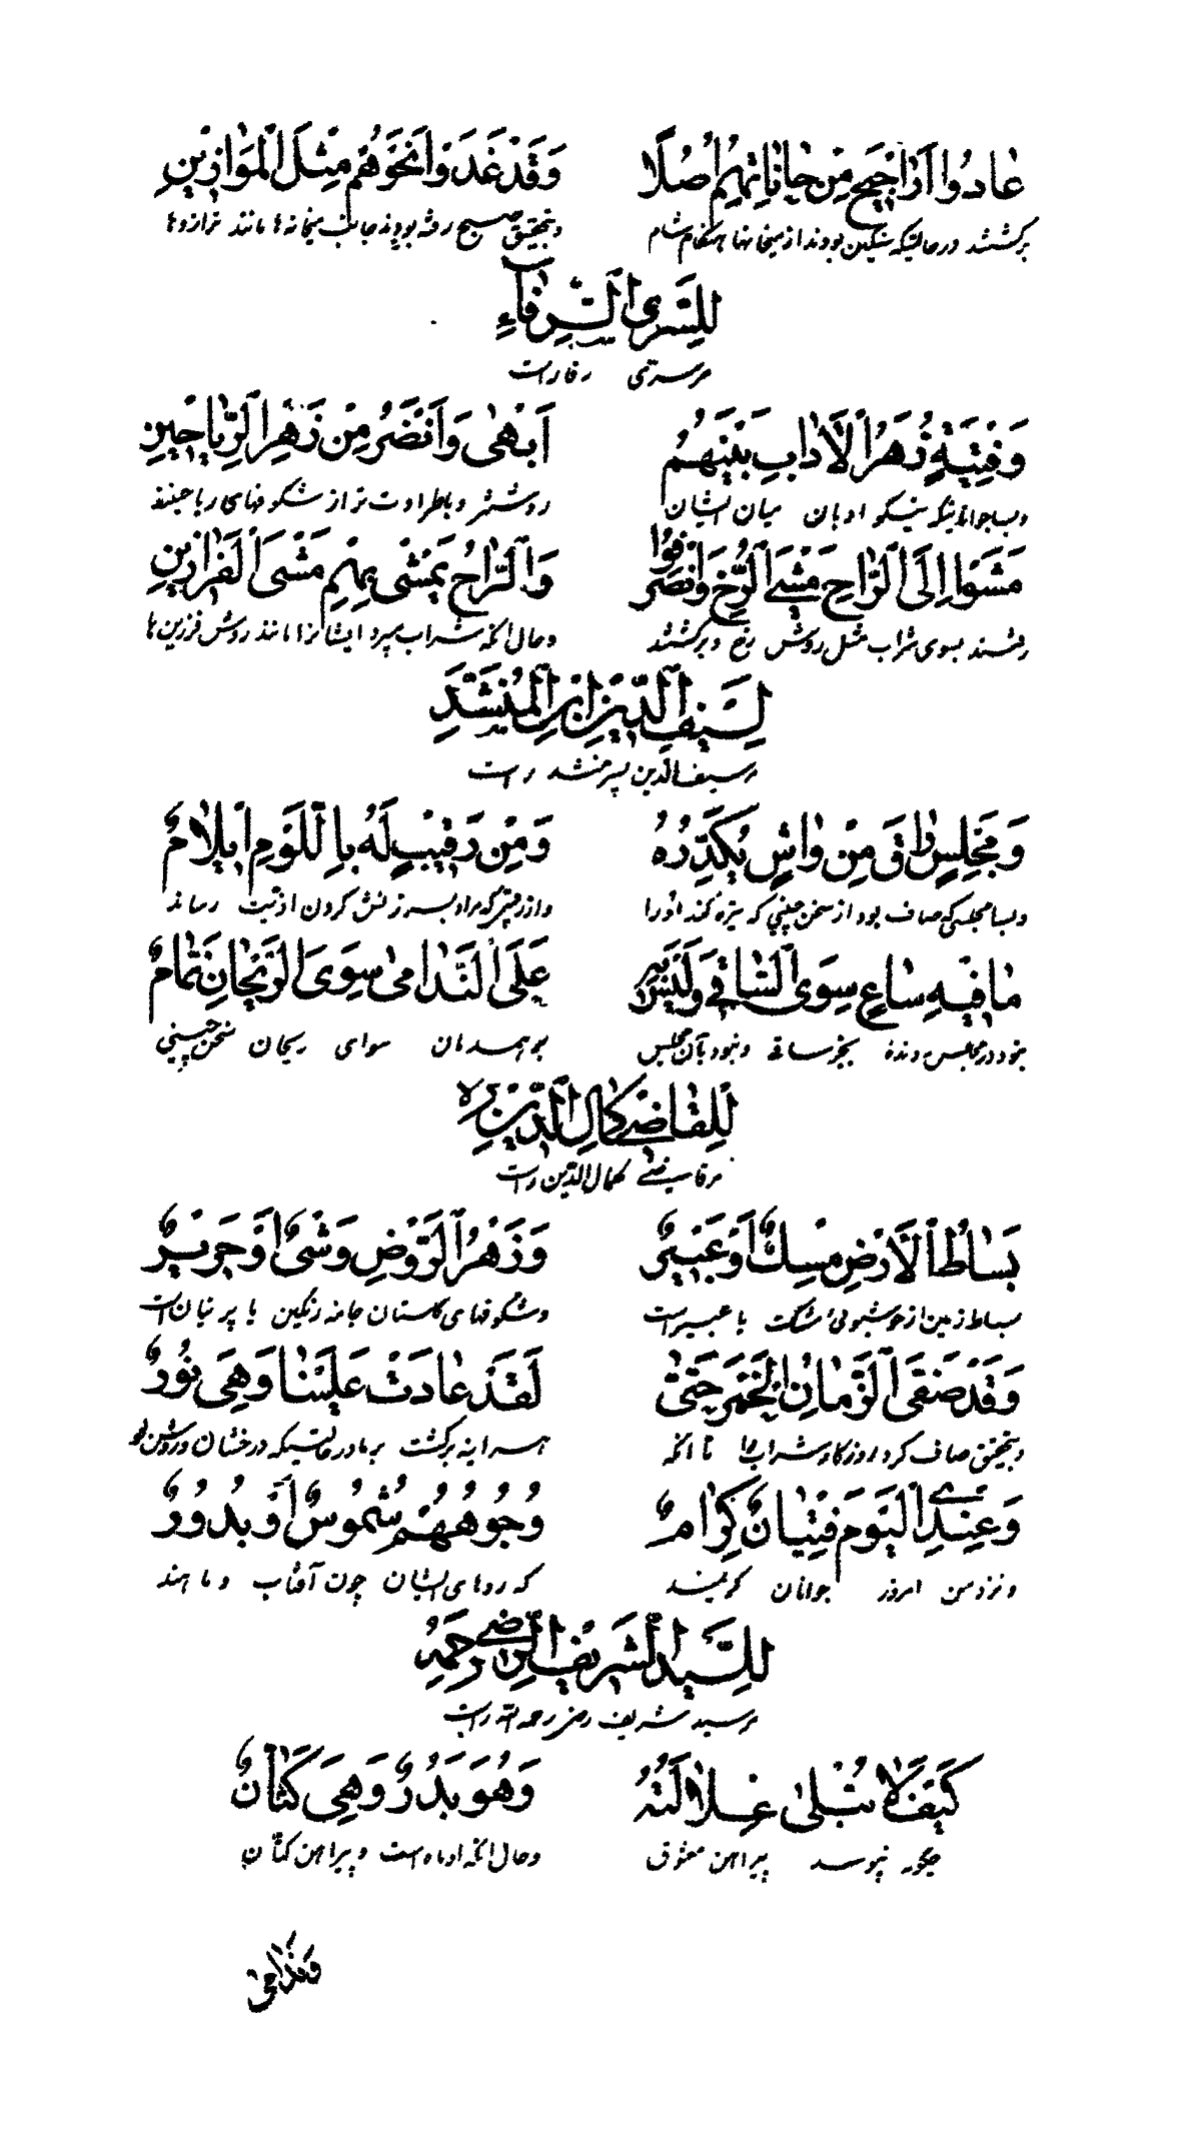 عٰادُوا اَرٰاجِحَ مِن حٰانٰاتِهِم اُصُلًا وَقَدْ غَدَوْا نَحْوَهُم مِثْلَ الْمَوٰازِینِ
برگشتند درحالتیکه سنگین بودند از میخانها هنگام شام وبتحقیق صبح رفته بودند جانب میخانه‌ها مانند ترازوها
لِلسَّرِیِ الرَّفّٰاءِ
مر سری رفا راست
وَفِتْیَةٍ زُهَرُ الْاٰدٰابِ بَیْنَهُمُ اَبْهٰی وَاَنْضَرُ مِنْ زَهْرِ الرَّیٰاحِینِ
وبسا جوانانیکه نیکو ادبان میان ایشان روشنتر و باطراوت تر از شکوفهای ریاحینند
مَشَوْا اِلَی الرّٰاحِ مَشْیَ الرُّخِّ وَانْصَرَفُوا وَالرّٰاحُ یَمْشی بِهِمِ مَشْیَ الْفَرٰازینِ
رفتند بسوی شراب مثل روش رخ و برگشتند وحال آنکه شراب میبرد ایشانرا مانند روش فرزین ها
لِسَیْفِ الدّینِ ابْنِ الْمُنْشَدِ
مر سیف الدین پسر منشد راست
وَمَجْلِسٍ رٰاقَ مِنْ وٰاشٍ یُکَدِّرُهُ وَمِنْ رَقیبٍ لَهُ بِاللَّوْمِ اِیلٰامٌ
وبسا مجلسی که صاف بود از سخن چینی که تیره کند او را واز رقیبی که مر او بسرزنش کردن اذیت رساند
مٰا فیٖهِ سٰاعٍ سِوَی السّٰاقی وَلَیْسَ بِهِ عَلَی النَّدٰامیٰ سِوَی الرَّیْحٰانِ نَمّٰامٌ
نبود در مجلس دونده بجز ساقی ونبود بآن مجلس بر همدمان سوای ریحان سخن چینی
لِلْقٰاضی کَمٰالِ الدّینِ ره
مر قاضی کمال الدین راست
بَسٰاطُ الْاَرْضِ مِسْکٌ اَوْ عَبیرٌ وَزَهْرُ الرَّوْضِ وَشْیٌ اَوْ حَریرٌ
بساط زمین از خوشبوئی مشکست یا عبیر است وشکوفهای گلستان جامه رنگین یا پرنیان است
وَقَدْ صَفَّی الزَّمٰانُ الْخَمْرَ حَتّٰی لَقَدْ عٰادَتْ عَلَیْنٰا وَهِیَ نُورٌ
وبتحقیق صاف کرد روزگار شراب را تا آنکه هر آینه برگشت بر ما در حالتیکه درخشان و روشن بود
وَعِنْدِی الْیَوْمَ فِتْیٰانٌ کِرٰامٌ وُجُوهُهُمْ شُمُوسٌ اَوْ بُدُورٌ
ونزد من امروز جوانان کریمند که روهای ایشان چون آفتاب و ماهند
لِلسَّیِّدِ الشَّریفِ الرَّضی رَحِمَهُ
مر سید شریف رضی رحمه الله راست
کَیْفَ لٰا تُبْلیٰ غِلٰالَتُهُ وَهُوَ بَدْرٌ وَهِیَ کَتّٰانٌ
چگونه نپوسد پیراهن معشوق وحال آنکه او ماه است و پیراهن کتان